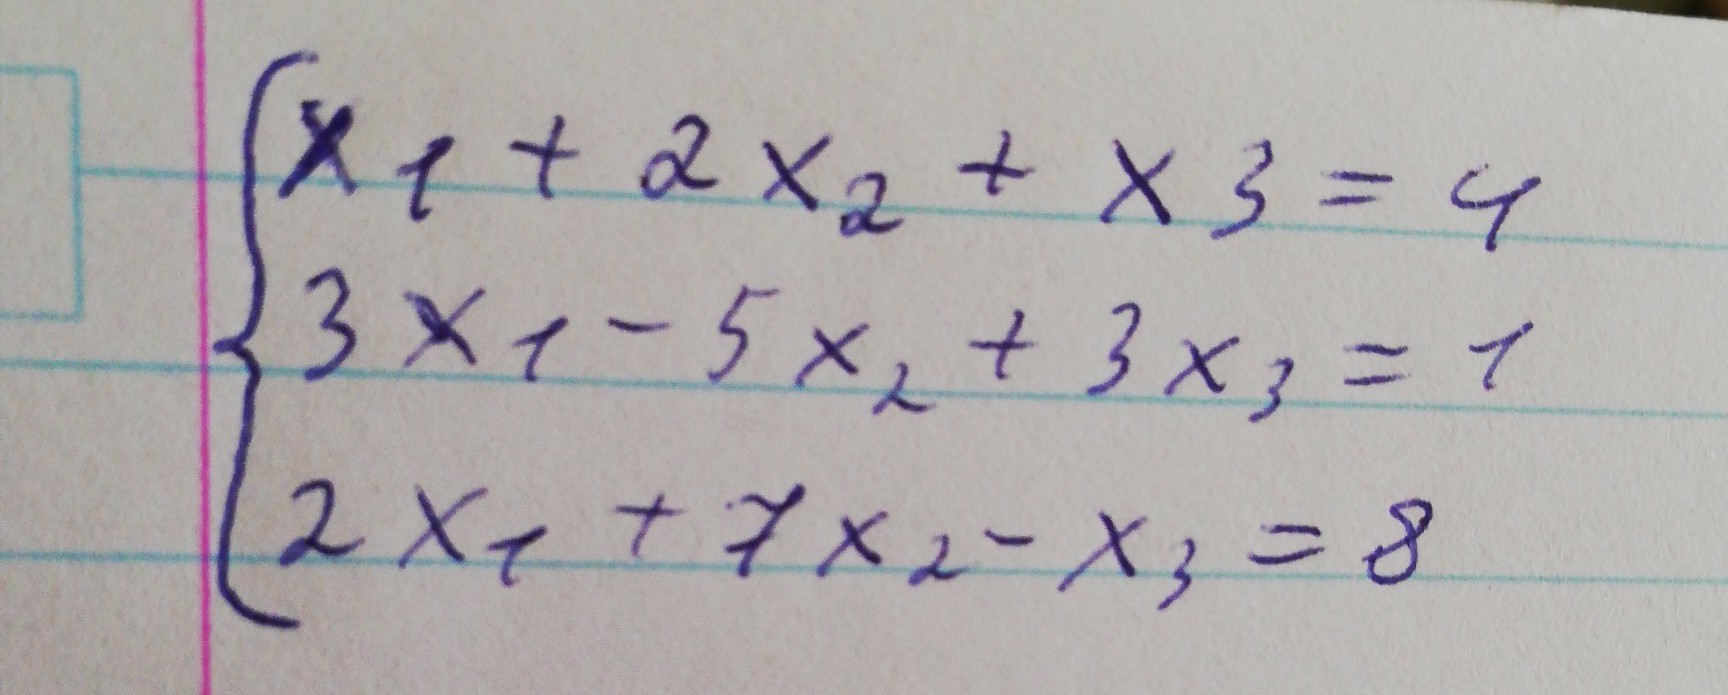 x₁ + 2x₂ + x3 = 4
3x₁ - 5x₂ + 3x₃ = 1
2x₁ + 7x₂ - x₃ = 8